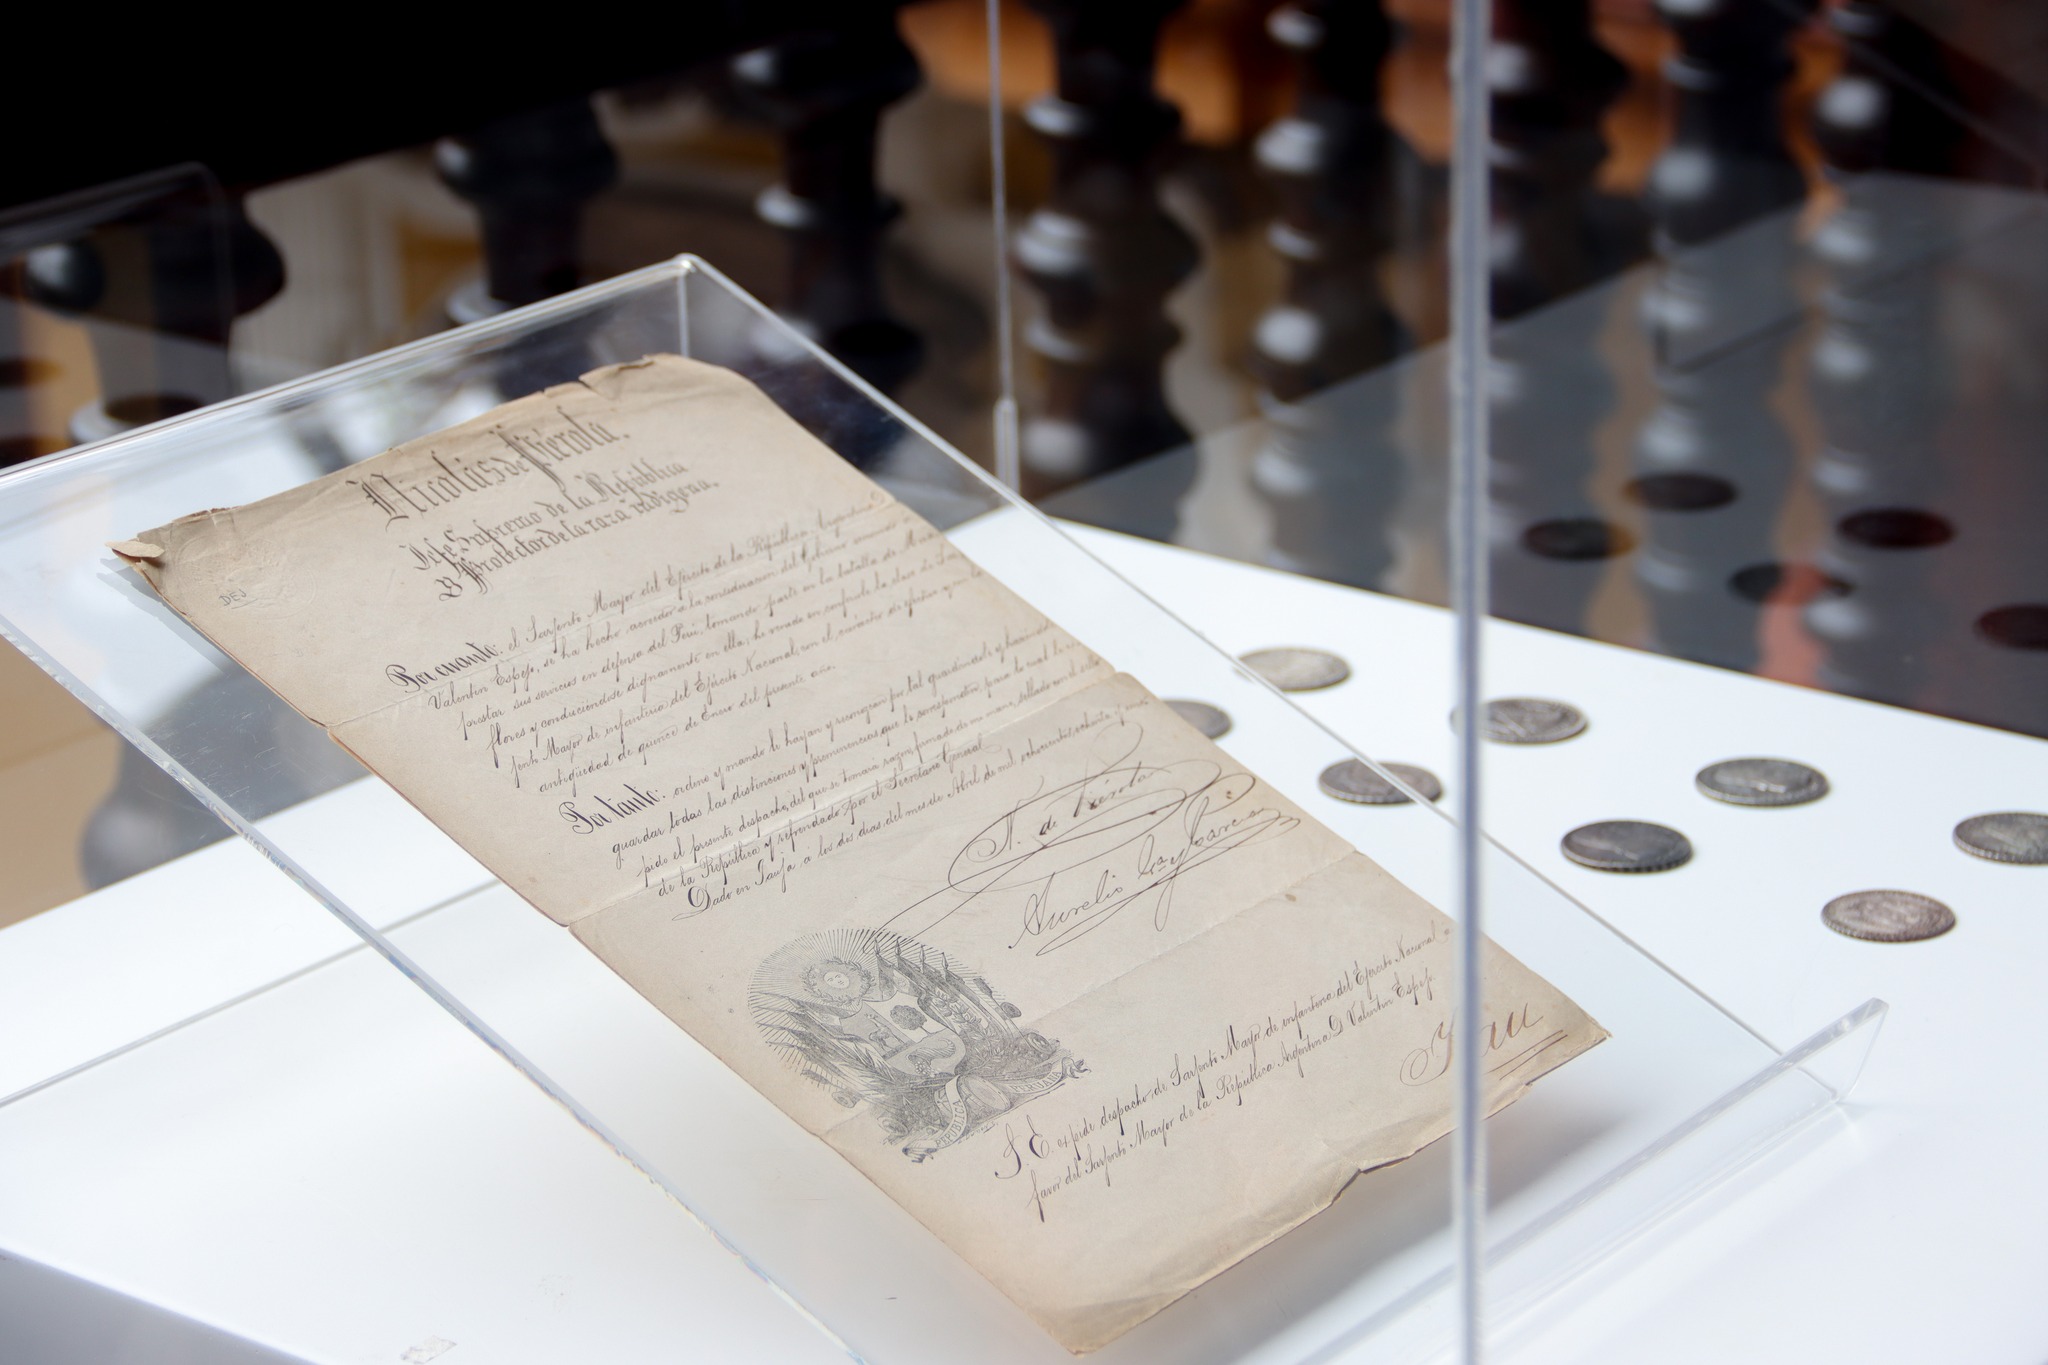 Nicolás de Piérola.
Jefe Supremo de la República
y Protector de la raza indígena.
DEJ
Por cuanto: el Sarjento Mayor del Ejército de la República Argentina
Valentin Espejo, se ha hecho acreedor a la consideracion del Gobierno
prestar sus servicios en defensa del Perú, tomando parte en la batalla de Mira
flores y conduciendose dignamente en ella; he venido en conferirle la clase de Sar
jento Mayor de infantería del Ejército Nacional, con el carácter de efectivo y con la
antigüedad de quince de Enero del presente año.
Por tanto: ordeno y mando le hayan y reconozcan por tal guardándole y haciendo
guardar todas las distinciones y preeminencias que le corresponden para lo cual le
pido el presente despacho, del que se tomará razon, firmado de mi mano, sellado con el sello
de la República y refrendado por el Secretario General
Dado en Jauja a los dos dias del mes de Abril de mil ochocientos ochenta y uno
N. de Piérola
Aurelio Ga. y Garcia
REPÚBLICA PERUANA
S. E. expide despacho de Sarjento Mayor de infantería del Ejército Nacional a
favor del Sarjento Mayor de la República Argentina D Valentin Espejo.